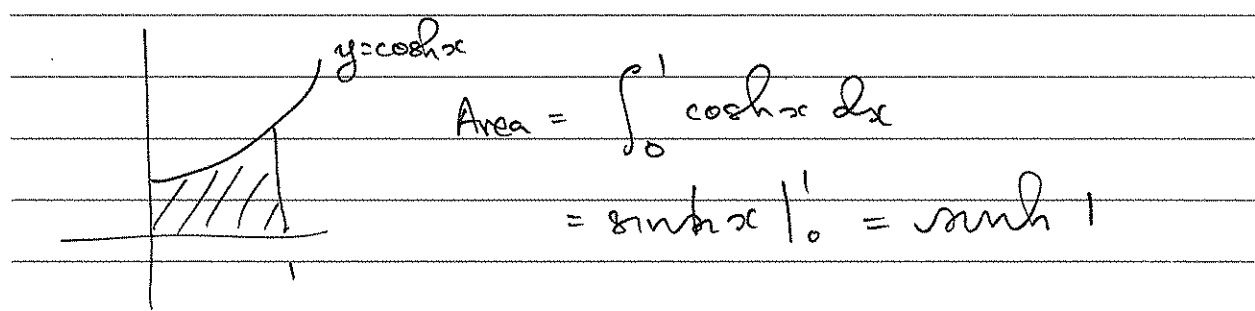 y=coshx
Area = ∫₀¹ coshx dx
= sinhx |₀¹ = sinh 1
1